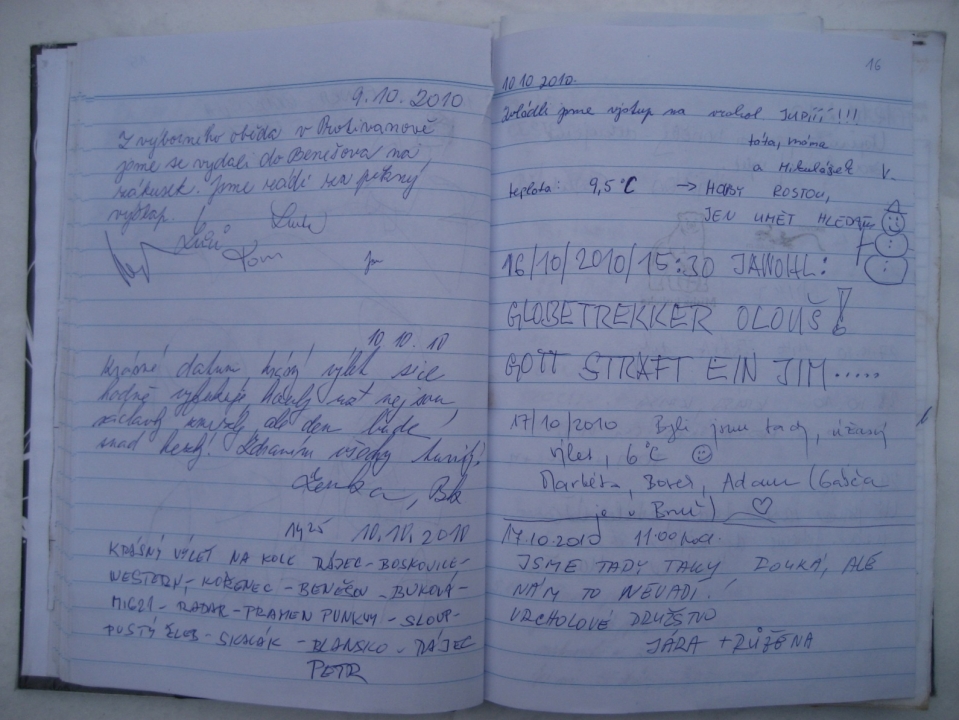 9.10.2010
Z výborného oběda v Protivanově
jsme se vydali do Benešova na
zákusek. Jsme rádi za pěkný
výšlap.
Tom
10.10.10
Krásné datum krásný výlet sice
hodně
ale den bude
snad hezký! Zdravím všechny turisty!
Lenka, Bk
14:25 10.10.2010
KRÁSNÝ VÝLET NA KOLE RÁJEC-BOSKOVICE-
-KOŘENEC-BENEŠOV-BUKOVÁ-
MIG21-RADAR-PRAMEN PUNKVY-SLOUP-
PUSTÝ ŽLEB-SKALÁK-BLANSKO-RÁJEC
PETR
16
10 10 2010.
Zvládli jsme výstup na vrchol JUPÍÍÍ!!!
táta, máma
a Mikulášek V.
teplota: 9,5°C → HOUBY ROSTOU,
JEN UMĚT HLEDAT
16/10/2010/15:30 JAWOHL:
GLOBETREKKER OLOUŠ!
GOTT STRAFT EIN JIM.....
17/10/2010 Byli jsme tady, úžasný
výlet, 6°C ☺
Markéta, Bores, Adam (Gášča
je v Brně) ♡
17.10.2010 11:00 hod.
JSME TADY TAKY FOUKÁ, ALE
NÁM TO NEVADÍ!
VRCHOLOVÉ DRUŽSTVO
JÁRA + RŮŽENA